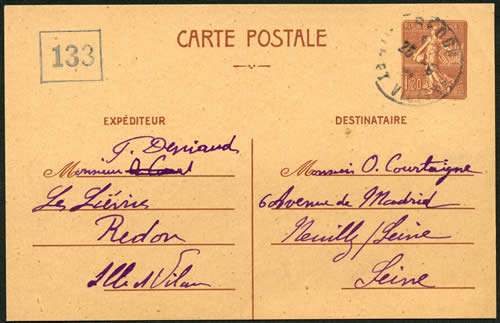 133
CARTE POSTALE
1F20
EXPÉDITEUR
T. Deniaud
Monsieur
Les Lièvres
Redon
Ille et Vilaine
DESTINATAIRE
Monsieur O. Courtaigne
6 Avenue de Madrid
Neuilly / Seine
Seine